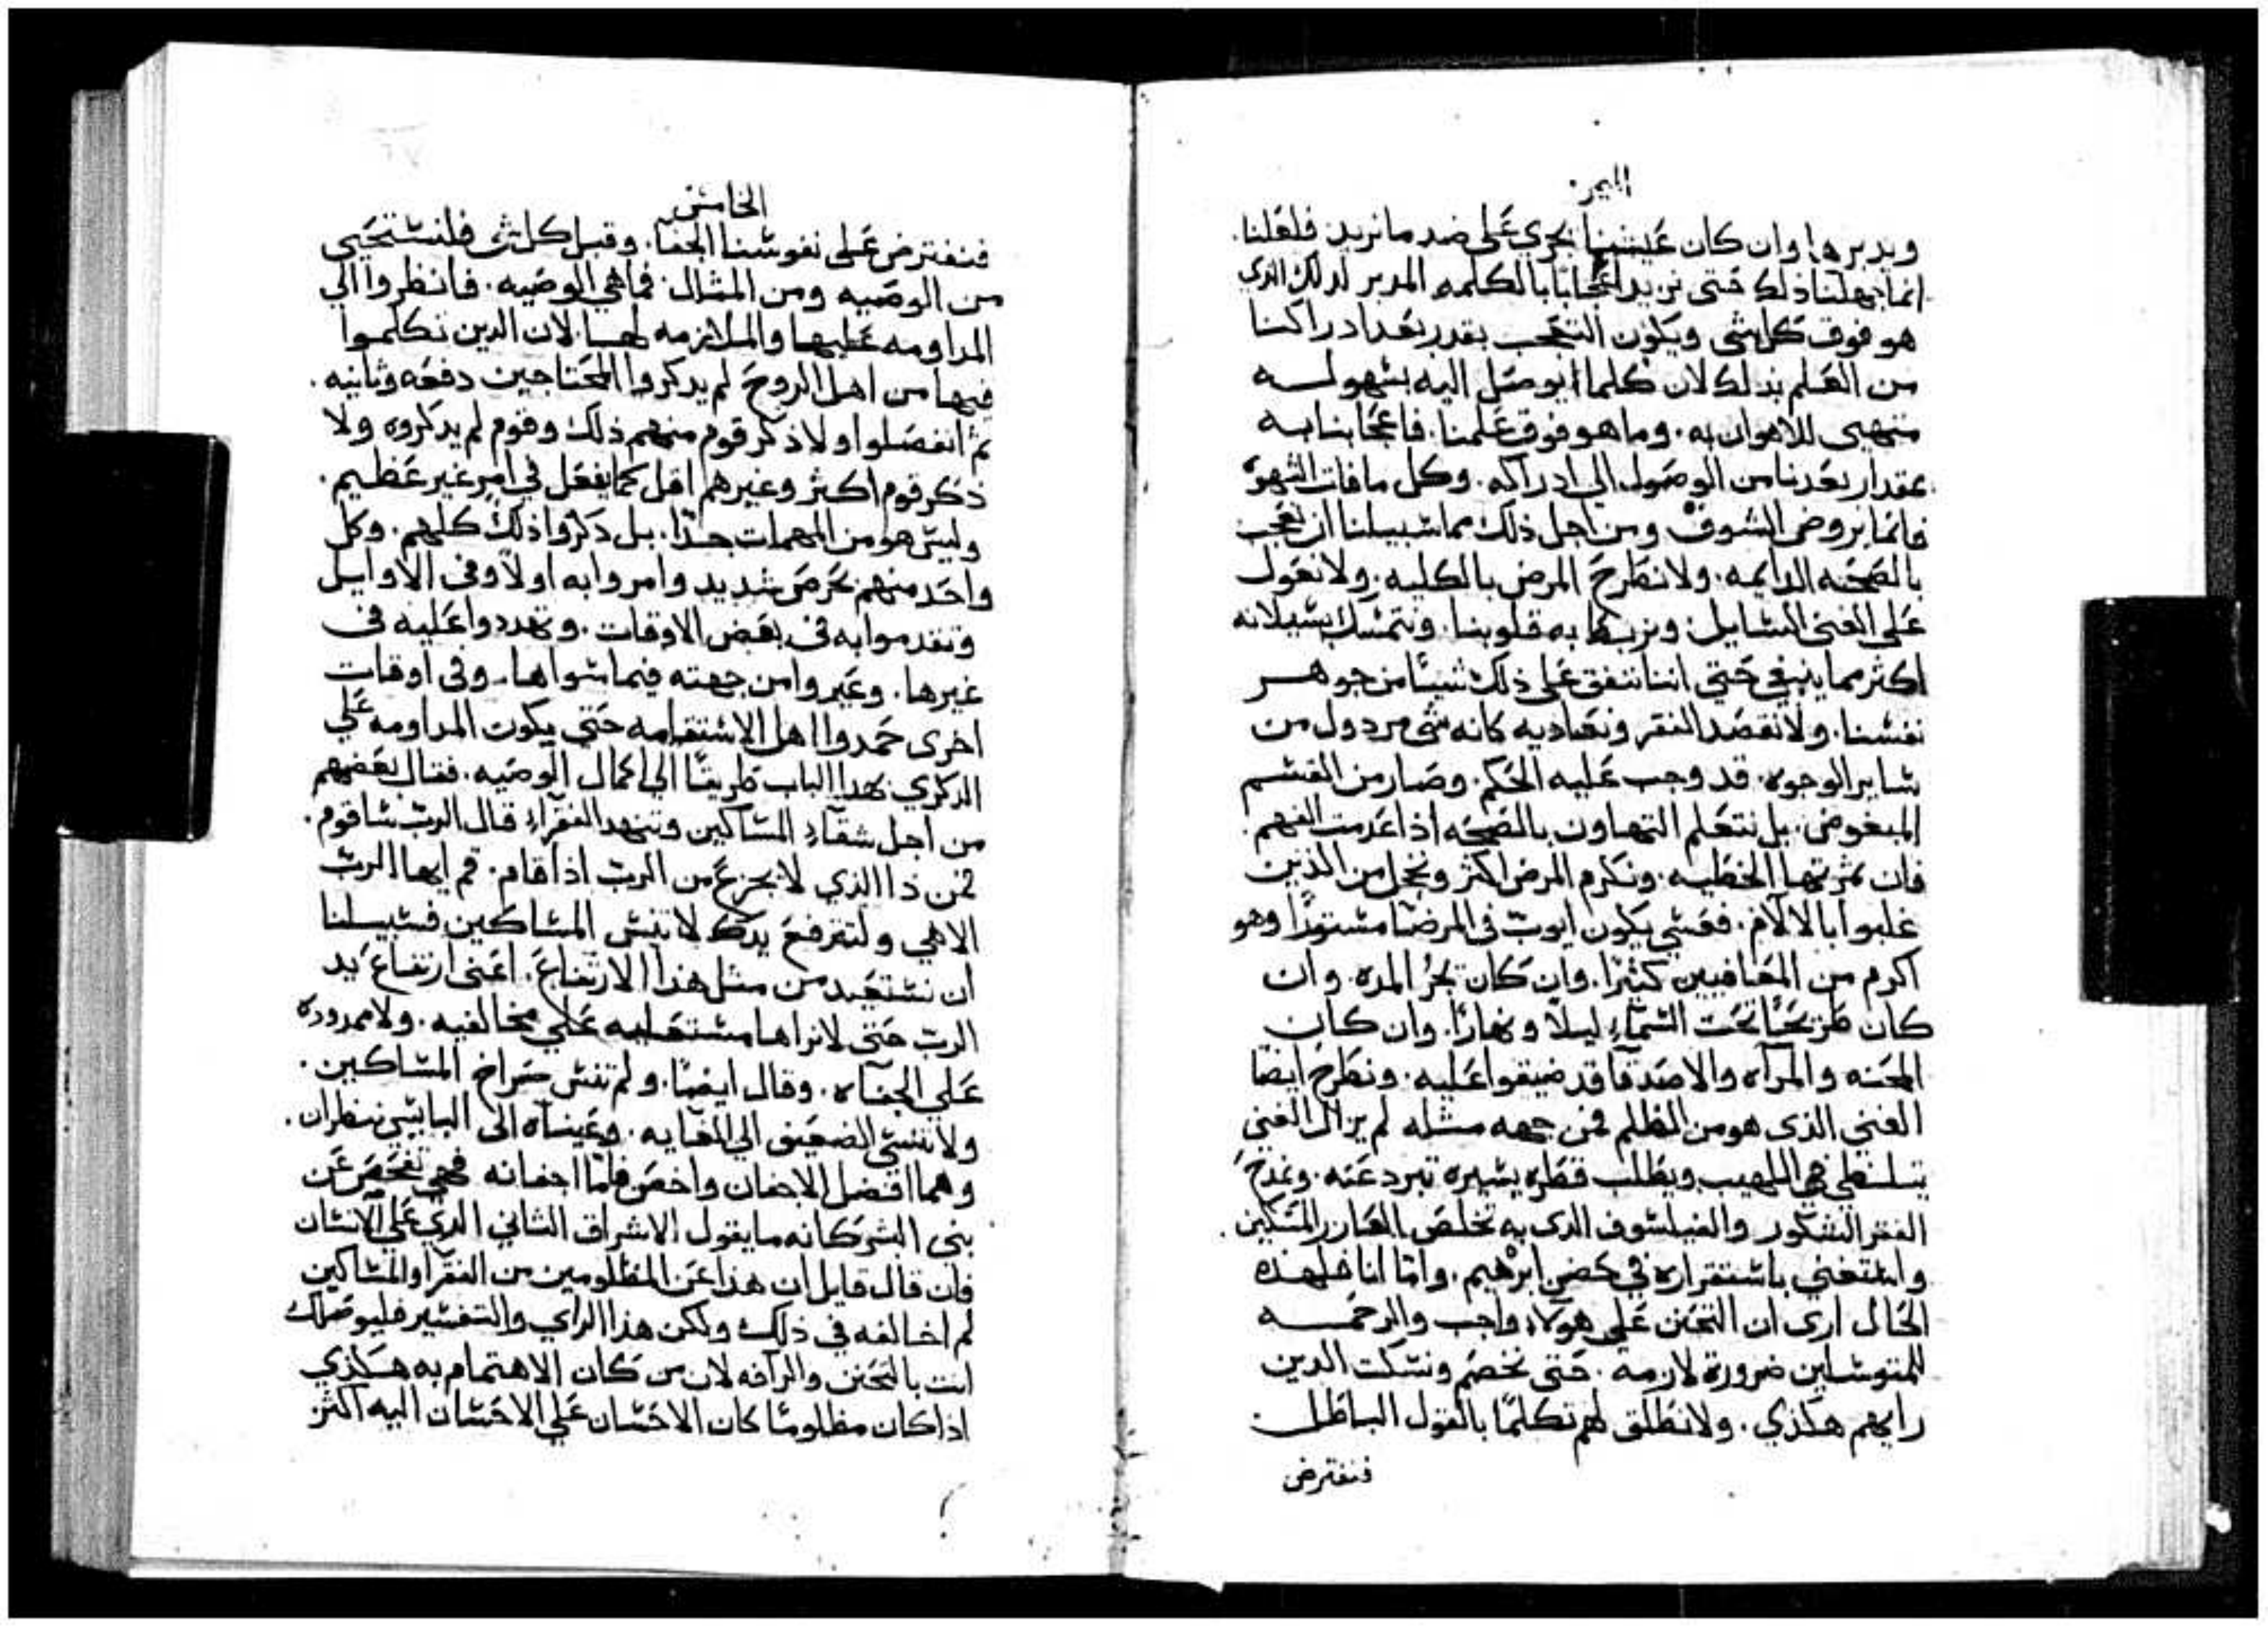 الميمر
ويدبرها وان كان عينها يجري على ضد ما نريد فلعلنا
انما جهلنا ذلك حتى نزيد اعجابًا بالكلمه المدبر لدلك الدي
هو فوق كل شي ويكون التعجب بقدر بعد ادراكنا
من العلم بذلك لان كلما ايوصل اليه بسهوله
متهيى للاهوان به. وما هو فوق علمنا. فاعجابنا به
بمقدار بعدنا من الوصول الي ادراكه. وكل ما فات الشهوة
فانما يروض الشوق ومن اجل ذلك مما سبيلنا ان نعجب
بالصحه الدايمه. ولا نطرح المرض بالكليه. ولا نعول
على الغنى السايل ونربط به قلوبنا. ونتمسك بسيلانه
اكثر مما ينبغي حتي اننا ننفق على ذلك شيئًا من جوهر
نفسنا. ولا نقصد الفقر ونعاديه كانه شي مردول من
ساير الوجوه. قد وجب عليه الحكم. وصار من القسم
المبغوض. بل نتعلم التهاون بالصحه اذا عدمت الفهم.
فان ثمرتها الخطيه. ونكرم المرض اكثر ونخجل من الذين
غلبوا بالالام. فعسي يكون ايوب في المرضا مستورًا وهو
اكرم من المعافيين كثيرًا. وان كان يجرُ المده. وان
كان طريحًا تحت السماء ليلًا ونهارًا. وان كان
المحنه والمرآه والاصدقا قد ضيقوا عليه. ونطرح ايضا
الغني الذى هو من الظلم فمن جهه مثله لم يزال الغني
يتلظي في اللهيب ويطلب قطره يسيره تبرد عنه. ونمدح
الفقر الشكور والفيلسوف الدى به تخلص العازر المسكين.
واستغني باستقراره في حضن ابرهيم. واما انا فلهذه
الحال ارى ان التحنن على هولاء واجب والرحمه
للمتوسلين ضرورة لازمه. حتى نخصم ونسكت الدين
رايهم هكذي. ولا نطلق لهم تكلمًا بالقول الباطل.
فنفترض
الخامس
فنفترض على نفوسنا الجفا. وقبل كل شى فلنستحيى
من الوصيه ومن المثال. فما هي الوصيه. فانظروا الي
المداومه عليها والملازمه لها. لان الدين تكلموا
فيها من اهل الروح لم يدكروا المحتاجين دفعه وثانيه.
ثم انفصلوا ولا ذكر قوم منهم ذلك وقوم لم يدكروه ولا
ذكر قوم اكثر وغيرهم اقل كما يفعل في امرٍ غير عظيم.
وليس هو من المهمات جدًا. بل دكروا ذلك كلهم. وكل
واحد منهم بحرص شديد وامروا به اولًا وفى الاوايل
وتقدموا به فى بعض الاوقات. وتهددوا عليه فى
غيرها. وعيروا من جهته فيما سواها. وفى اوقات
اخرى حمدوا اهل الاستقامه حتي يكون المداومه علي
الدكري بهدا الباب طريقًا الي اكمال الوصيه. فقال بعضهم
من اجل شقاءِ المساكين وتنهد الفقراءِ قال الربّ ساقوم.
فمن ذا الذي لا يجزع من الربّ اذا قام. قم ايها الربّ
الاهي ولترفع يدك لا تنس المساكين فسبيلنا
ان نستعيد من مثل هذا الارتفاع. اعني ارتفاع يد
الربّ حتى لا نراها مستعليه على مخالفيه. ولا ممدوده
على الجفاه. وقال ايضًا. ولم تنس صراخ المساكين.
ولا تنسي الضعيف الي الغايه. وعيناه الى البايس ننظران.
وهما افضل الاجفان واخص فاما اجفانه فهي تفحص عن
بني البشر كانه ما يقول الاشراق الثاني الدي على الانسان
فان قال قايل ان هذا عن المظلومين من الفقرا والمساكين
لم اخالفه في ذلك ولكن هذا الراي والتفسير فليوصلك
انت بالتحنن والرآفه لان من كان الاهتمام به هكذي
اذا كان مظلومًا كان الاحسان على الاحسان اليه اكثر